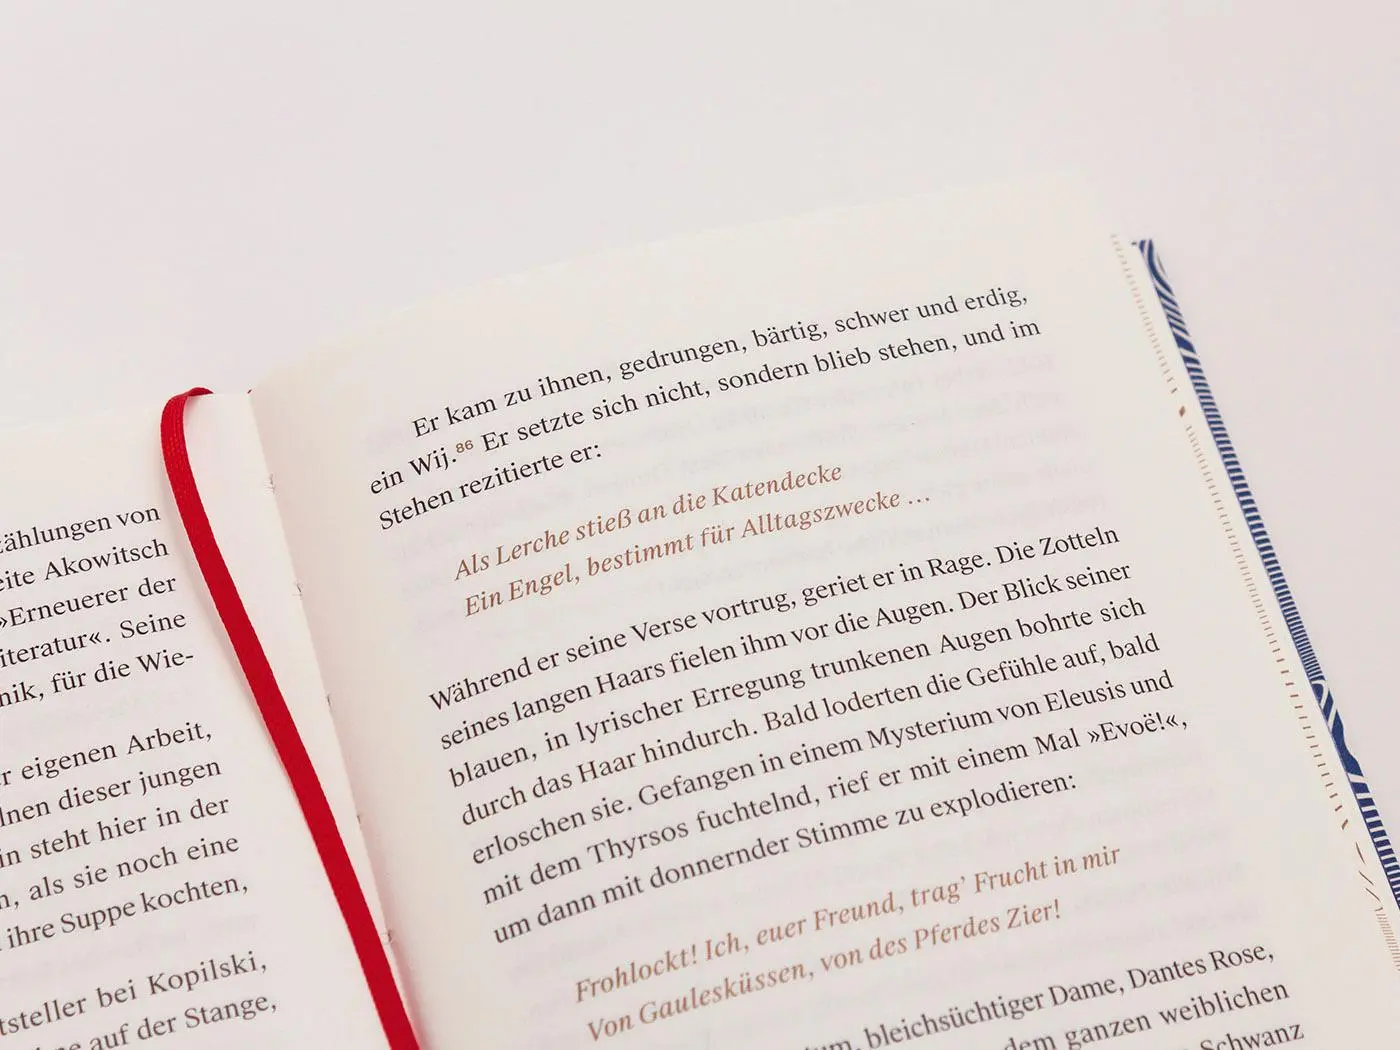 von
Akowitsch
»Erneuerer der
Seine
für die Wie-
eigenen Arbeit,
dieser jungen
steht hier in der
als sie noch eine
ihre Suppe kochten,
bei Kopilski,
auf der Stange,
Er kam zu ihnen, gedrungen, bärtig, schwer und erdig,
ein Wij.⁸⁶ Er setzte sich nicht, sondern blieb stehen, und im
Stehen rezitierte er:
Als Lerche stieß an die Katendecke
Ein Engel, bestimmt für Alltagszwecke …
Während er seine Verse vortrug, geriet er in Rage. Die Zotteln
seines langen Haars fielen ihm vor die Augen. Der Blick seiner
blauen, in lyrischer Erregung trunkenen Augen bohrte sich
durch das Haar hindurch. Bald loderten die Gefühle auf, bald
erloschen sie. Gefangen in einem Mysterium von Eleusis und
mit dem Thyrsos fuchtelnd, rief er mit einem Mal »Evoë!«,
um dann mit donnernder Stimme zu explodieren:
Frohlockt! Ich, euer Freund, trag’ Frucht in mir
Von Gaulesküssen, von des Pferdes Zier!
bleichsüchtiger Dame, Dantes Rose,
dem ganzen weiblichen
Schwanz